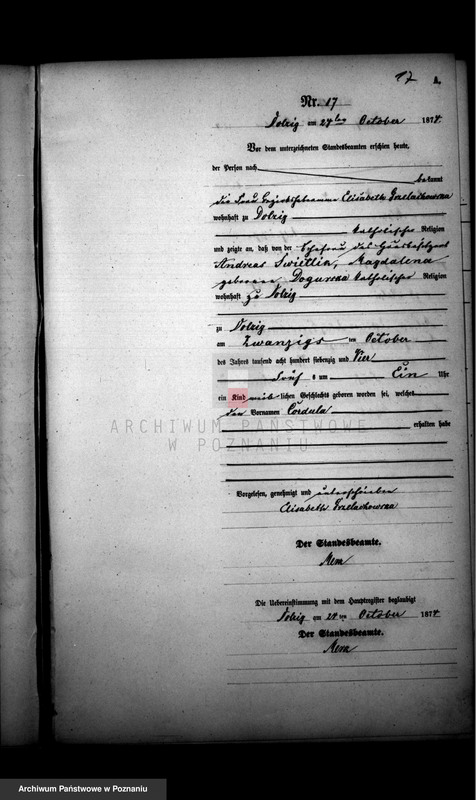 17 A.
Nr. 17
Dolzig am 24ten October 1874
Vor dem unterzeichneten Standesbeamten erschien heute,
der Person nach
bekannt
die Frau Elisabeth Grzelachowska
wohnhaft zu Dolzig
katholischer Religion
und zeigte an, daß von der Ehefrau des
Andreas Swietlik, Magdalena
geborenen katholischer Religion
wohnhaft zu Dolzig
zu Dolzig
am Zwanzigsten October
des Jahres tausend acht hundert siebenzig und Vier
früh um Ein Uhr
ein Kind weiblichen Geschlechts geboren worden sei, welches
den Vornamen Cordula
erhalten habe
ARCHIWUM PAŃSTWOWE
W POZNANIU
Vorgelesen, genehmigt und unterschrieben
Elisabeth Grzelachowska
Der Standesbeamte.
Die Uebereinstimmung mit dem Hauptregister beglaubigt
Dolzig am 24ten October 1874
Der Standesbeamte.
Archiwum Państwowe w Poznaniu